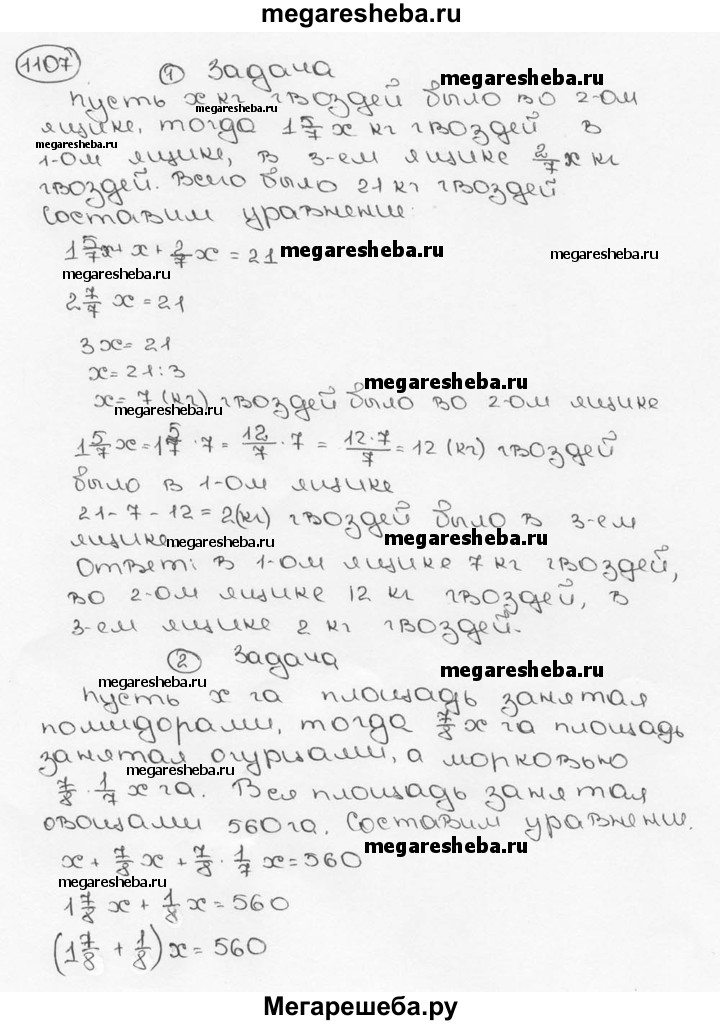 megaresheba.ru
1107
1 Задача megaresheba.ru
Пусть x кг гвоздей было во 2-ом
megaresheba.ru
ящике, тогда 1 5/7 x кг гвоздей в
1-ом ящике, в 3-ем ящике 2/7 x кг
megaresheba.ru
гвоздей. Всего было 21 кг гвоздей
Составим уравнение:
1 5/7 x + x + 2/7 x = 21 megaresheba.ru
megaresheba.ru megaresheba.ru
2 7/7 x = 21
3x = 21
x = 21 : 3
megaresheba.ru
x = 7 (кг) гвоздей было во 2-ом ящике
megaresheba.ru
1 5/7 x = 1 5/7 · 7 = 12/7 · 7 = 12·7/7 = 12 (кг) гвоздей
было в 1-ом ящике
21 - 7 - 12 = 2(кг) гвоздей было в 3-ем
ящике megaresheba.ru megaresheba.ru
Ответ: в 1-ом ящике 7 кг гвоздей,
во 2-ом ящике 12 кг гвоздей, в
3-ем ящике 2 кг гвоздей.
2 Задача
megaresheba.ru megaresheba.ru
Пусть x га площадь занятая
помидорами, тогда 7/8 x га площадь
занятая огурцами, а морковью
megaresheba.ru
7/8 · 1/7 x га. Вся площадь занятая
овощами 560 га. Составим уравнение.
x + 7/8 x + 7/8 · 1/7 x = 560 megaresheba.ru
megaresheba.ru
1 7/8 x + 1/8 x = 560
(1 7/8 + 1/8) x = 560
Мегарешеба.ру